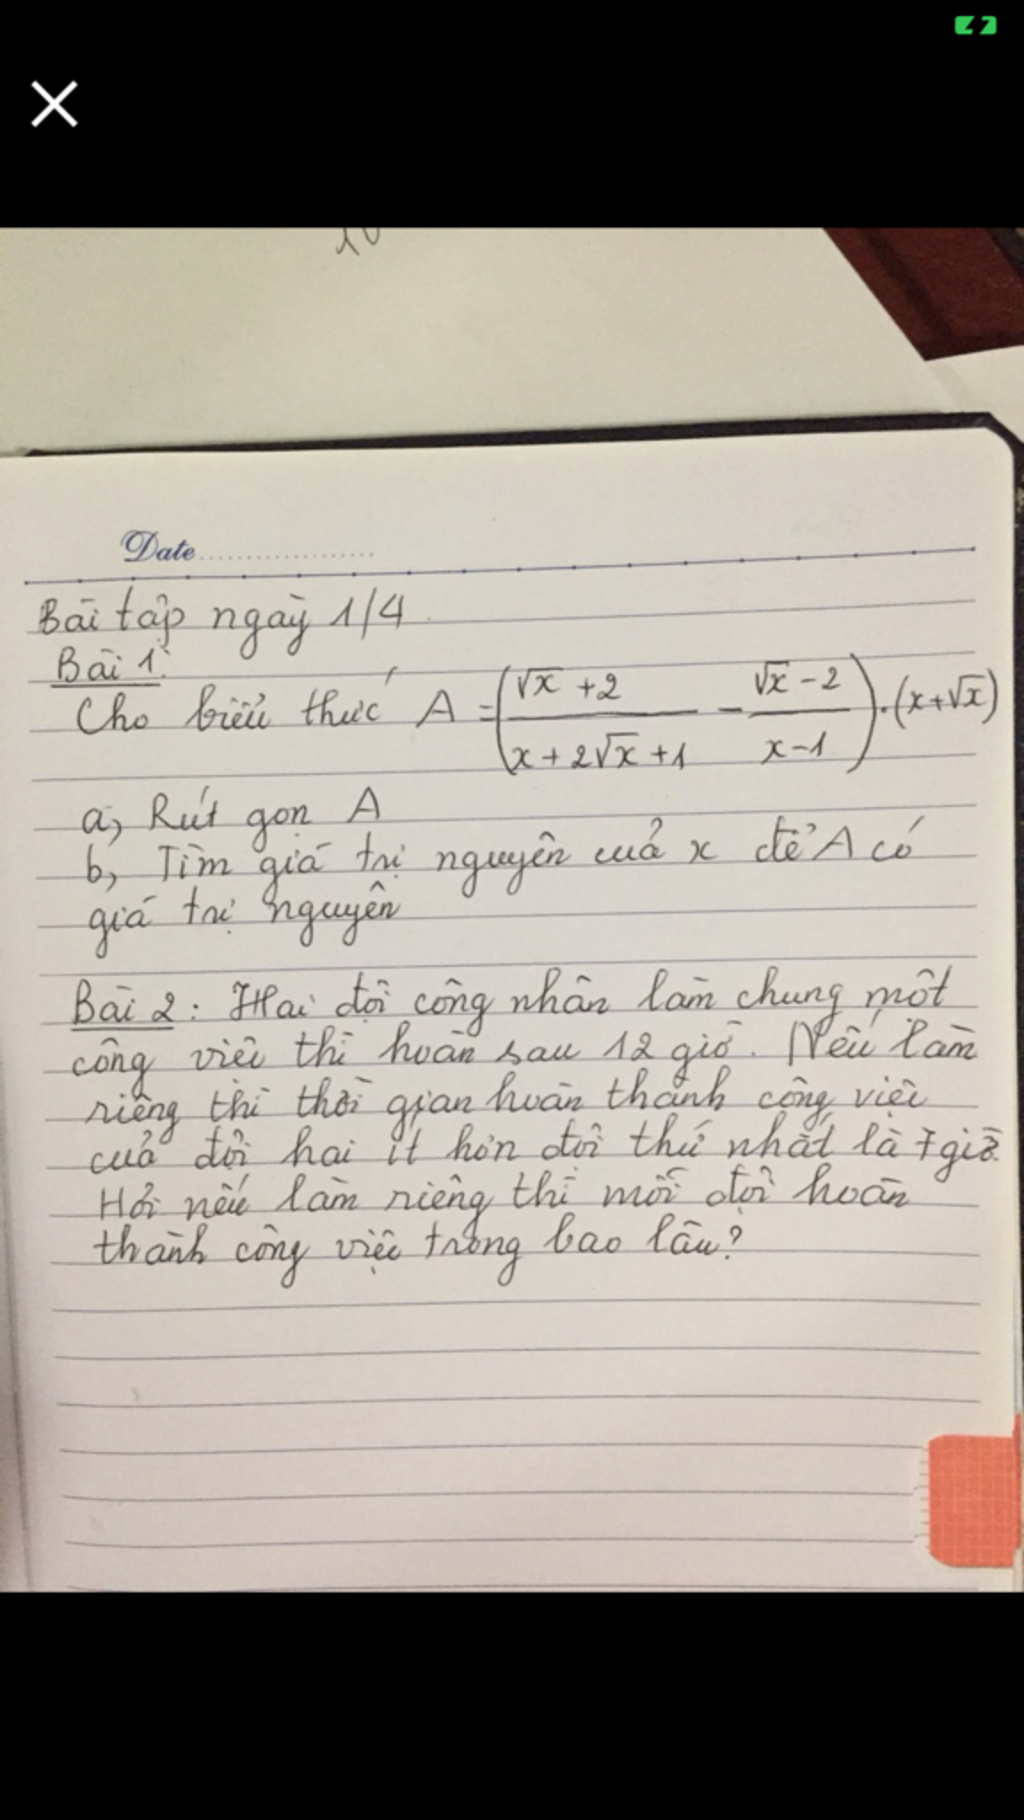 10
Date
Bài tập ngày 1/4
Bài 1:
Cho biểu thức A = ((√x + 2)/(x + 2√x + 1) - (√x - 2)/(x - 1)).(x+√x)
a, Rút gọn A
b, Tìm giá trị nguyên của x để A có
giá trị nguyên
Bài 2: Hai đội công nhân làm chung một
công việc thì hoàn sau 12 giờ. Nếu làm
riêng thì thời gian hoàn thành công việc
của đội hai ít hơn đội thứ nhất là 7 giờ.
Hỏi nếu làm riêng thì mỗi đội hoàn
thành công việc trong bao lâu?